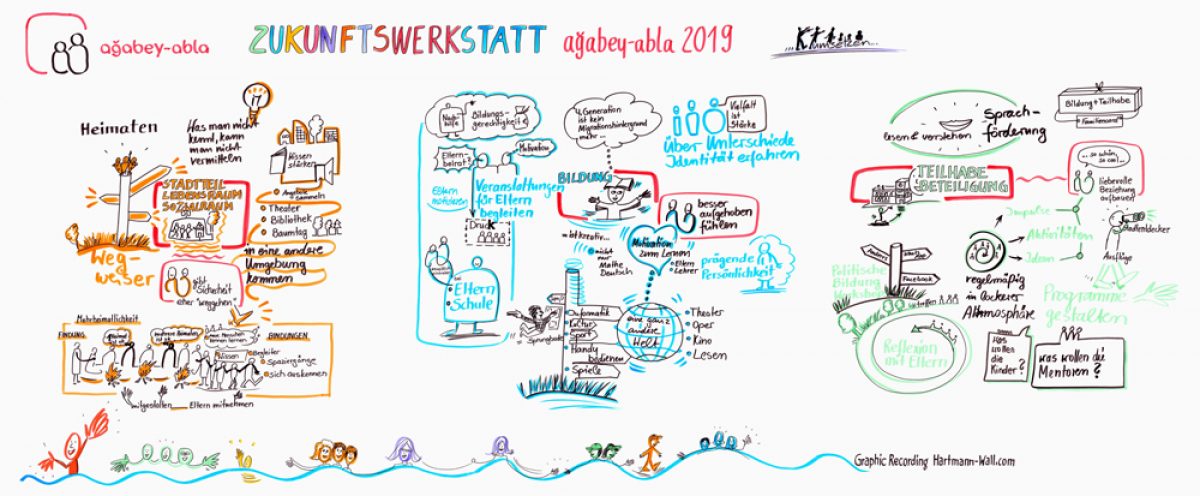 ağabey-abla
ZUKUNFTSWERKSTATT ağabey-abla 2019
umsetzen...
Heimaten
Was man nicht
kennt, kann
man nicht
vermitteln
Wissen
stärken
STADTTEIL
LEBENSRAUM
SOZIALRAUM
sammeln
Theater
Bibliothek
Baumtag
in eine andere
Umgebung
kommen
Weg-
weiser
gibt
Sicherheit
eher "weggehen"
Mehrheimatlichkeit
BINDUNG
BINDUNGEN
Wissen
Begleiter
Spaziergänge
sich auskennen
mitgestalten
Eltern mitnehmen
Nach-
hilfe
Bildungs-
gerechtigkeit
Eltern-
beirat?
Motivation
Eltern
motivieren
Veranstaltungen
für Eltern
begleiten
Druck
Eltern
Schule
Generation
ist kein
Migrationshintergrund
mehr
Vielfalt
ist
Stärke
Über Unterschiede
Identität erfahren
BILDUNG
besser
aufgehoben
fühlen
...ist kreativ...
nicht
nur
Mathe
Deutsch
Motivation
zum Lernen
Eltern
Lehrer
prägende
Persönlichkeit
= Sprungbrett
Informatik
Kultur
Sport
Handy
bedienen
Spiele
eine ganz
andere
Welt
Theater
Oper
Kino
Lesen
lesen & verstehen
Sprach-
förderung
Bildung + Teilhabe
TEILHABE
BETEILIGUNG
...so schön,
so cool...
liebevolle
Beziehung
aufbauen
Impulse
Aktivitäten
Ideen
Stadtentdecker
Ausflüge
Facebook
Politische
Bildung
Workshop
regelmäßig
in lockerer
Athmosphäre
Programme
gestalten
Reflexion
mit Eltern
Was
wollen
die
Kinder?
was wollen die
Mentoren?
Graphic Recording Hartmann-Wall.com